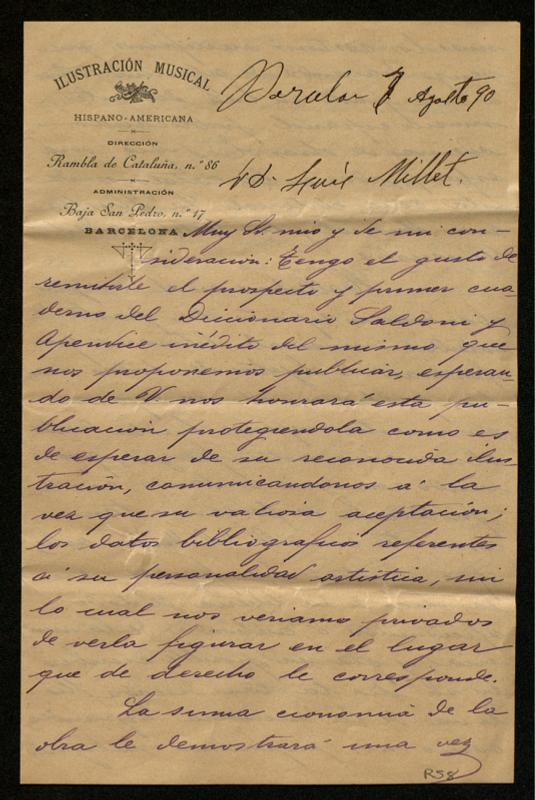 ILUSTRACIÓN MUSICAL
HISPANO-AMERICANA
DIRECCIÓN
Rambla de Cataluña, n.° 86
ADMINISTRACIÓN
Baja San Pedro, n.° 17
BARCELONA
Agosto 90
D. Luis Millet.
Muy Sr. mio y de mi con-
sideración: Tengo el gusto de
remitirle el prospecto y primer cua-
derno del Diccionario Saldoni y
Apendice inédito del mismo que
nos proponemos publicar, esperan-
do de V. nos honrará esta pu-
blicación protegiendola como es
de esperar de su reconocida ilus-
tración, comunicandonos á la
vez que su valiosa aceptación;
los datos bibliograficos referentes
á su personalidad artistica, sin
lo cual nos veriamos privados
de verla figurar en el lugar
que de derecho le corresponde.
La suma economia de la
obra le demostrará una vez
R58